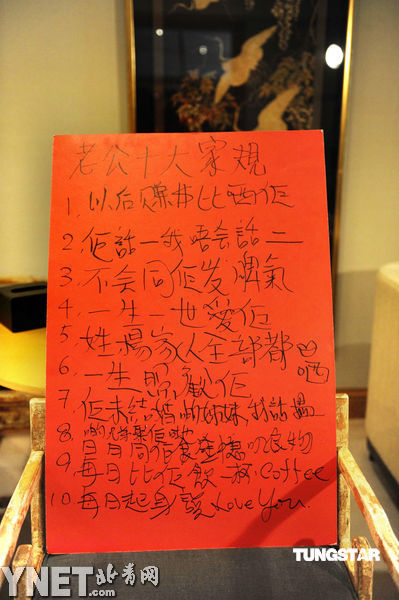 老公十大家規
1. 以后 比晒佢
2. 佢話一我唔会話二
3. 不会同佢发脾氣
4. 一生一世愛佢
5. 姓楊家人全部都
6. 一生照顧佢
7. 佢未結婚的姊妹我話
8. 日日同佢食
9. 每日比佢飲一杯Coffee
10. 每日起身說 Love You.
TUNGSTAR
YNET.com 北青网